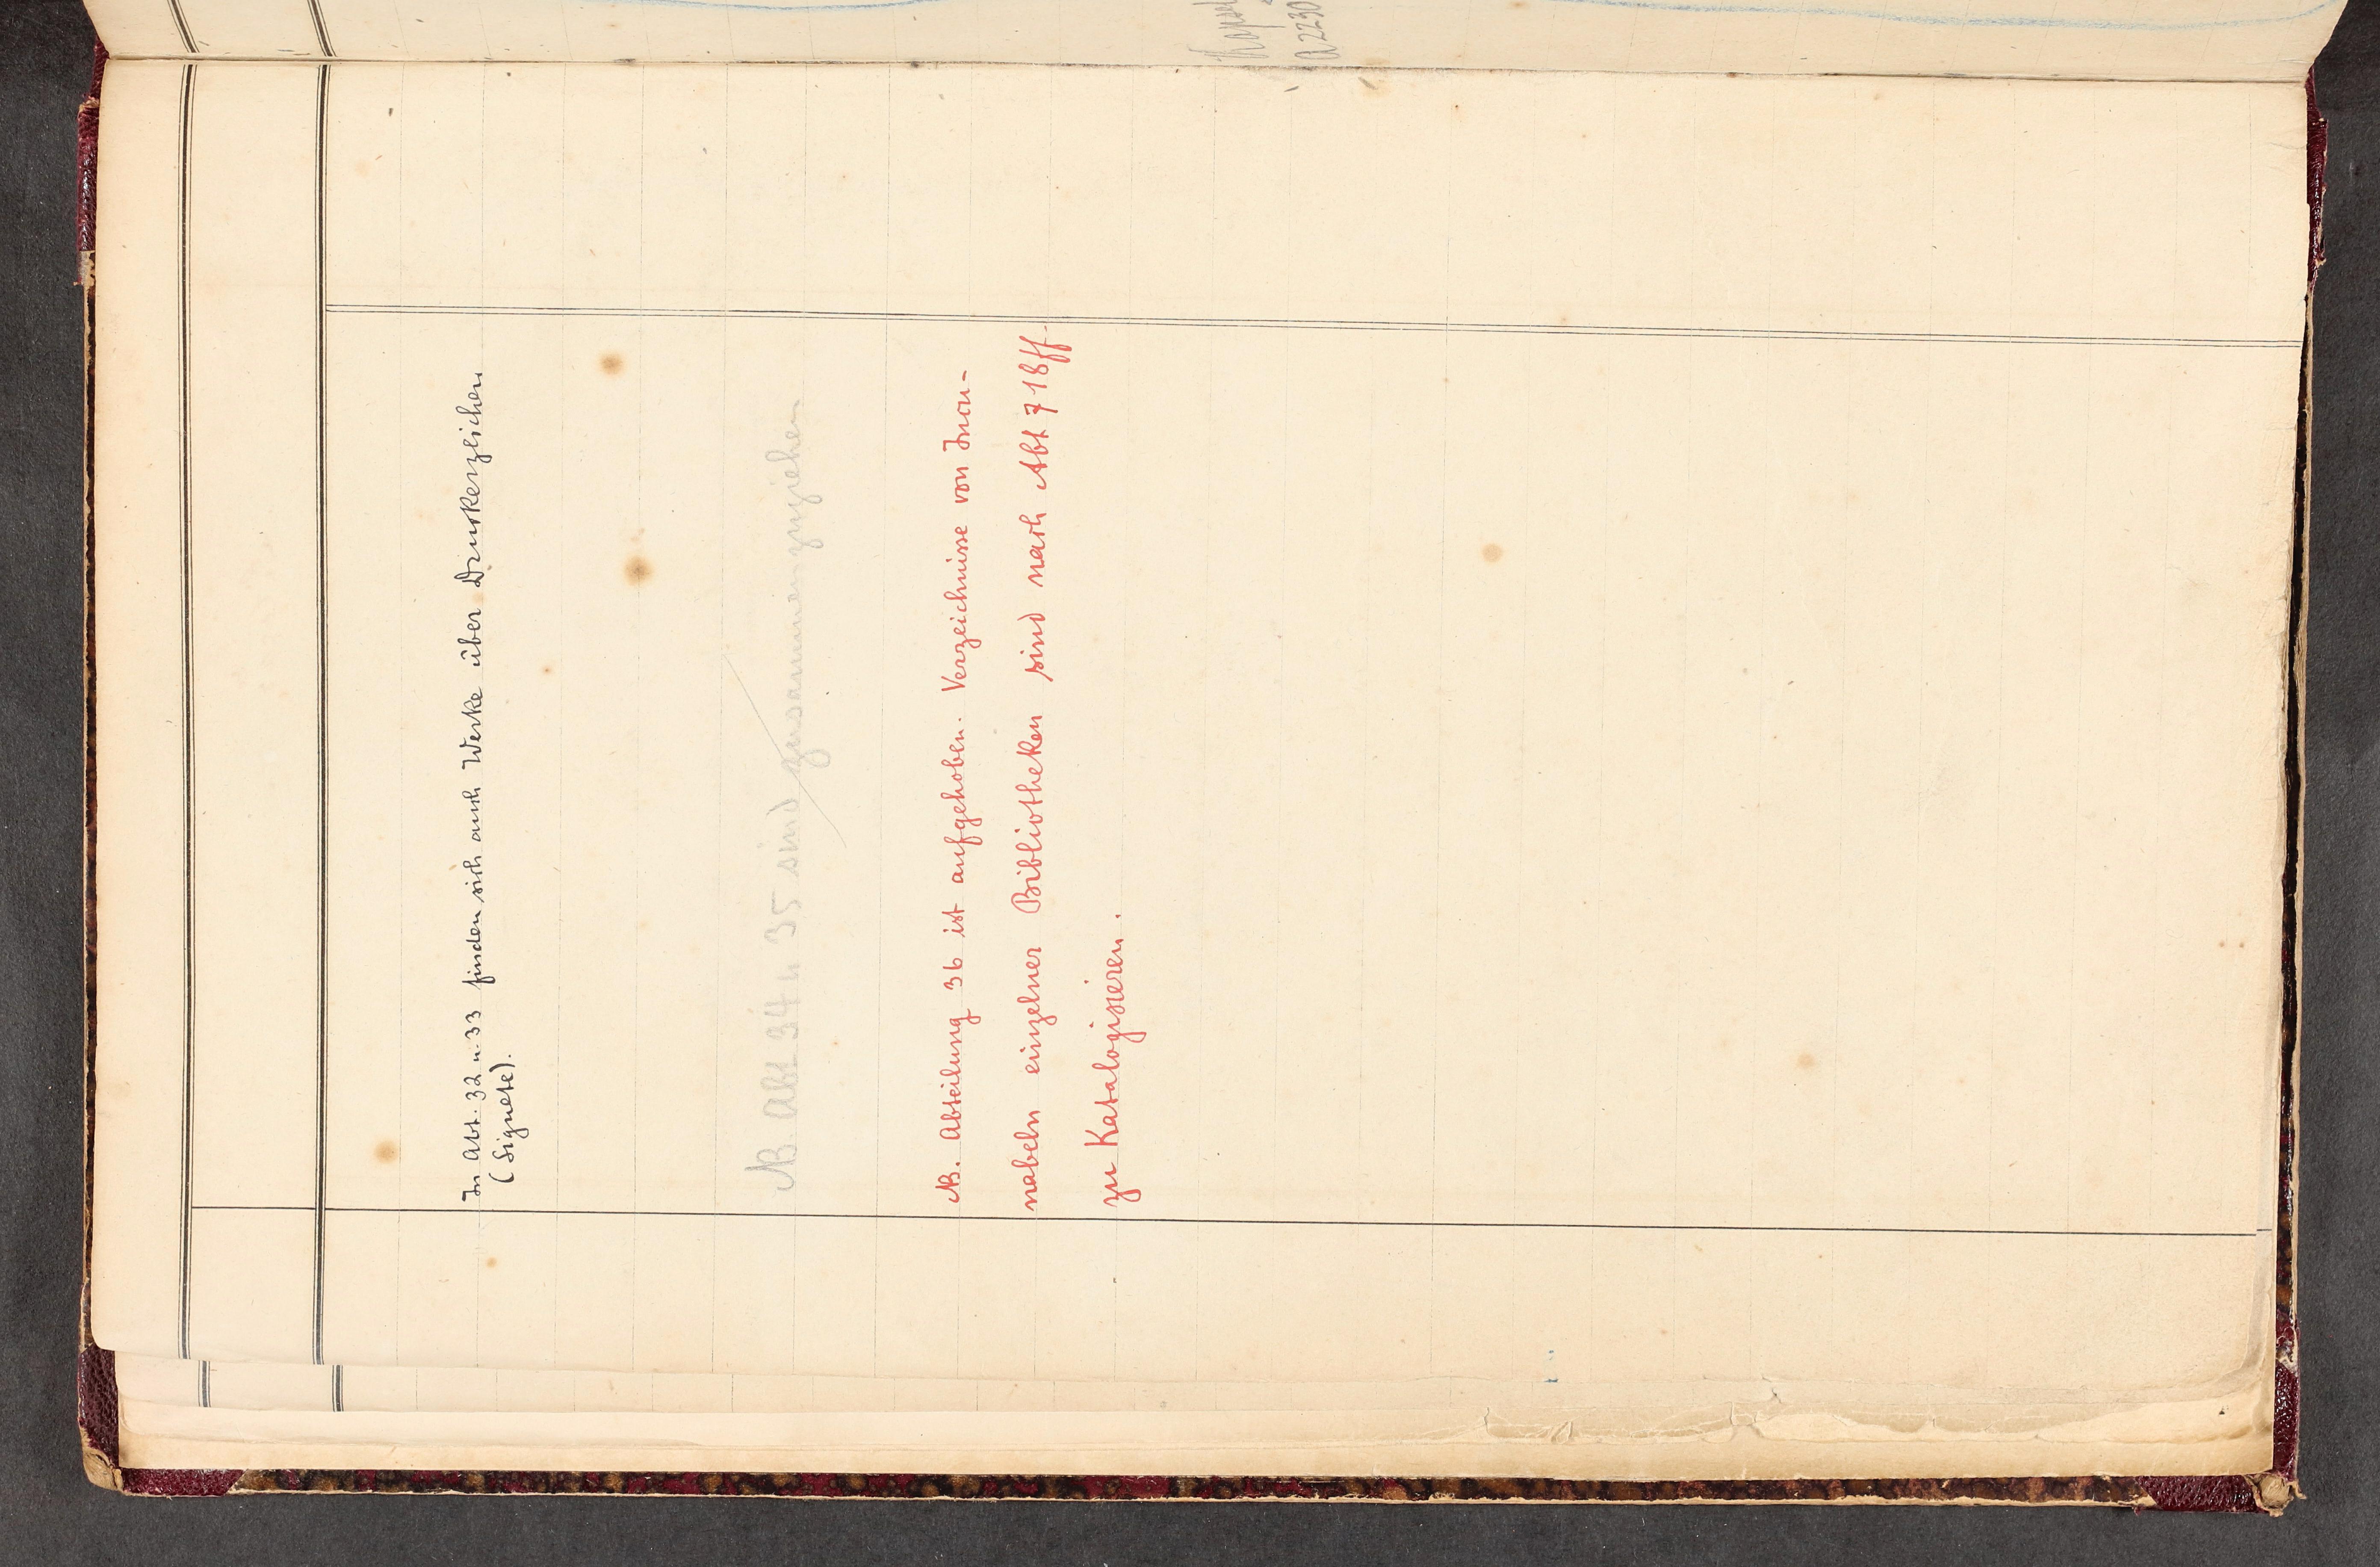 In Abt. 32 u. 33 finden sich auch Werke über Druckerzeichen
(Signete).
NB Abt 34 u 35 sind zusammenzuziehen
NB. Abteilung 36 ist aufgehoben. Verzeichnisse von Incu-
nabeln einzelner Bibliotheken sind nach Abt 718ff.
zu Katalogisieren.
a 2230